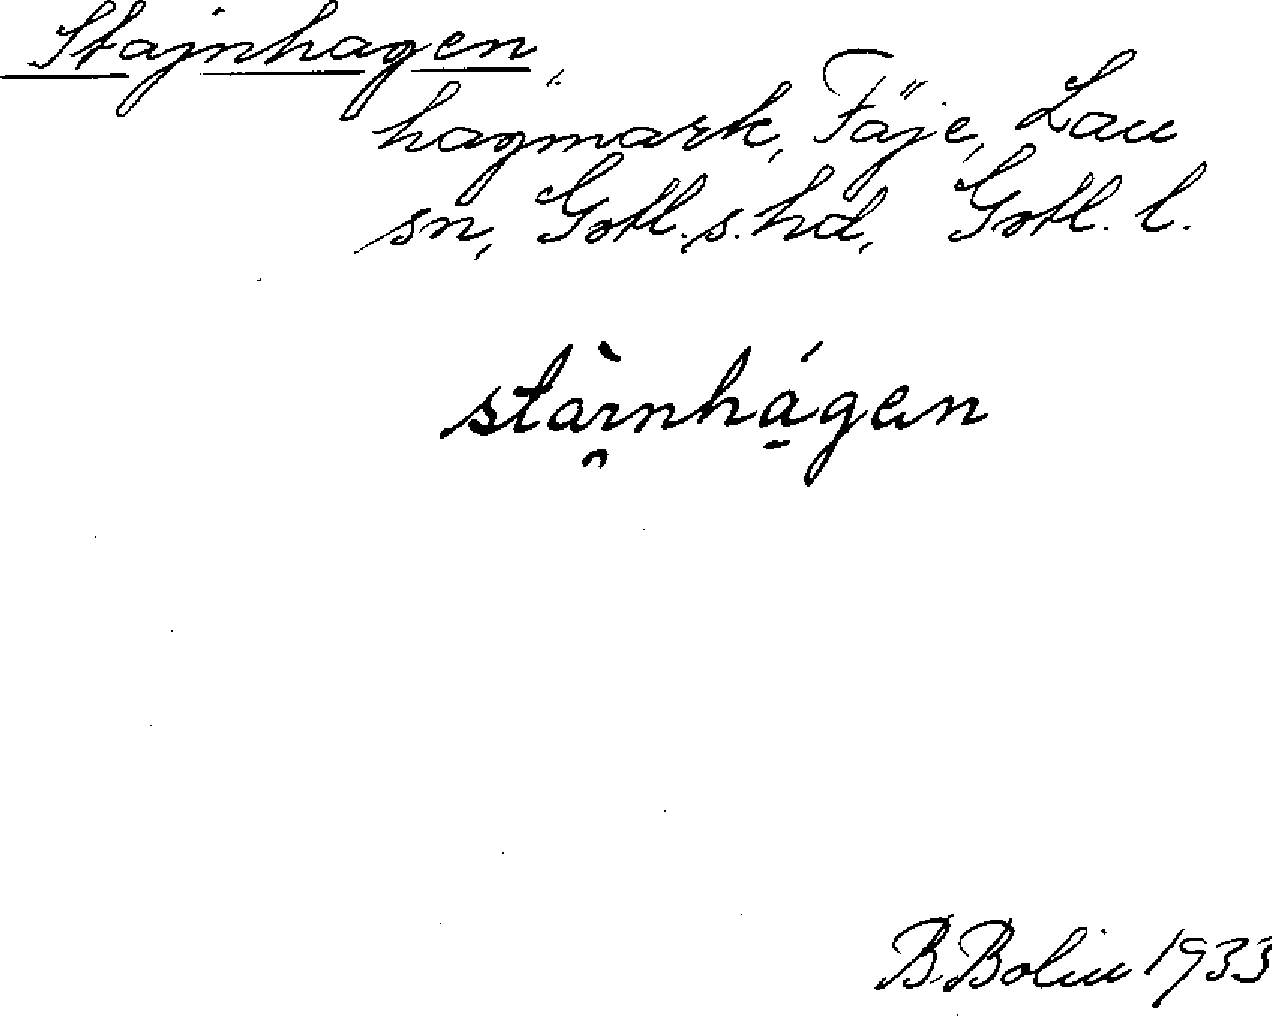 Stajnhagen,
hagmark, Fäje, Lau
sn, Gotl. s. hd, Gotl. l.
B. Bolin 1933